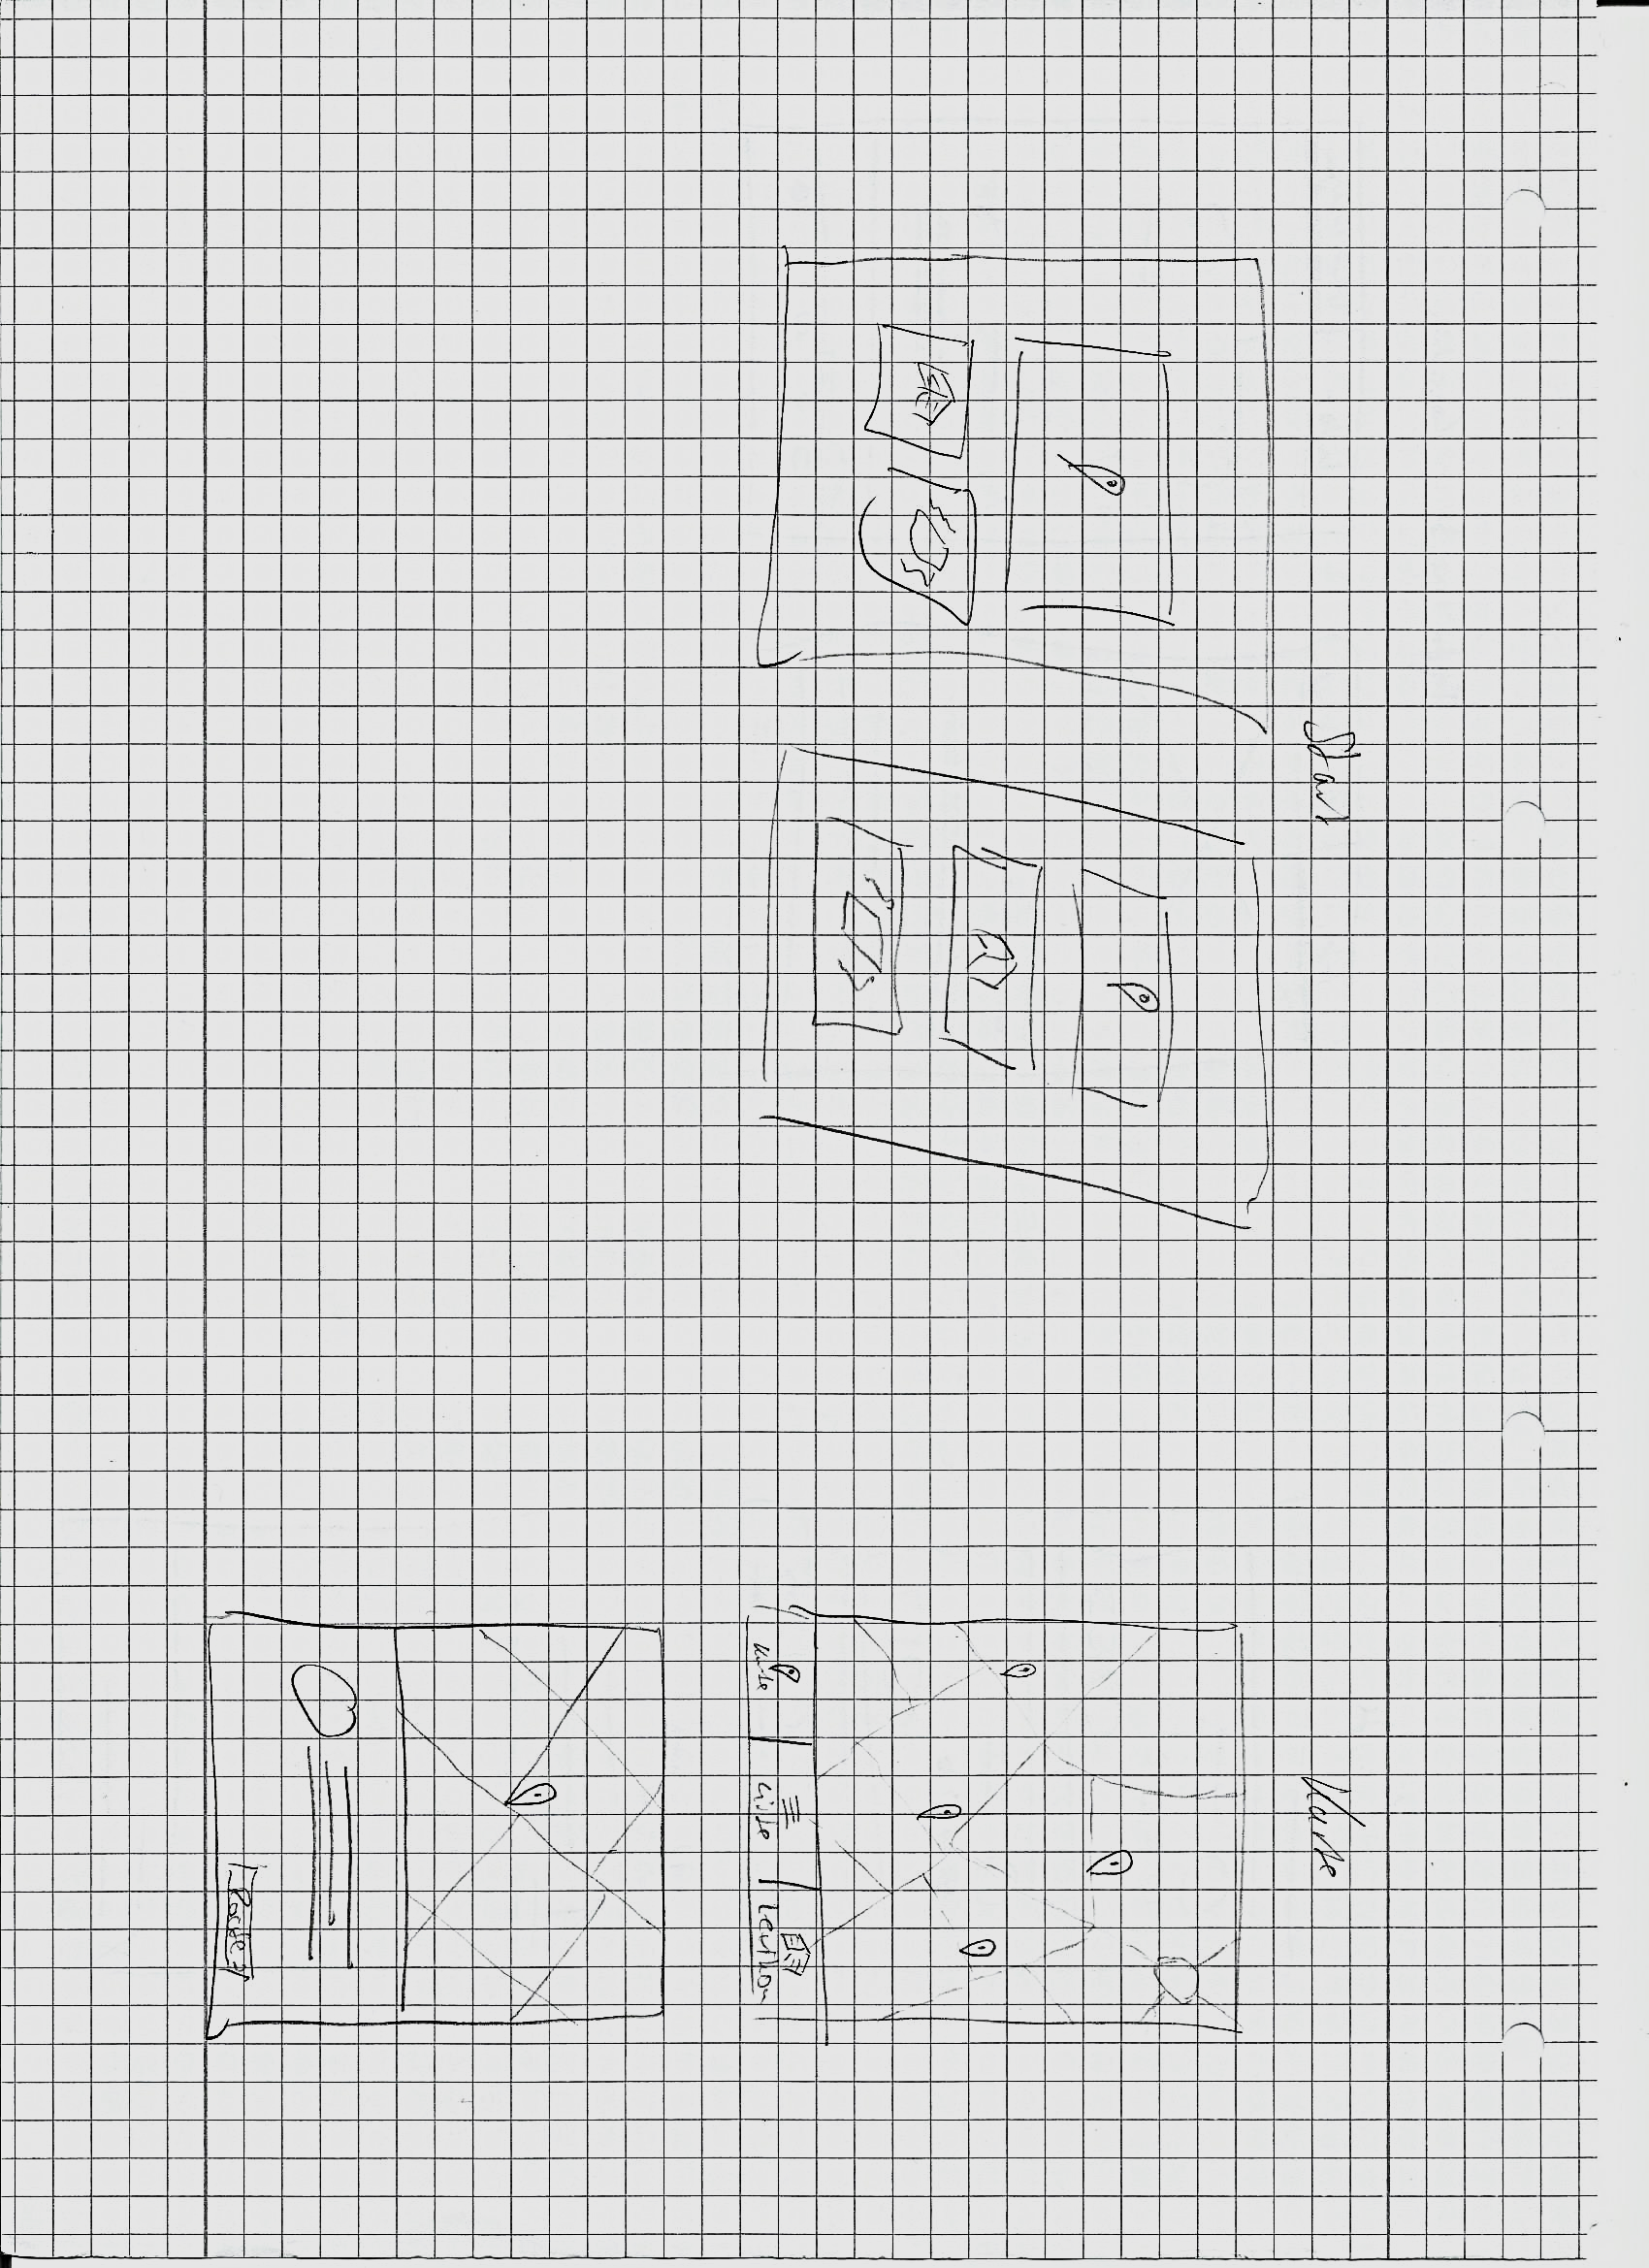 Start
Karte
Karte
Liste
Lexikon